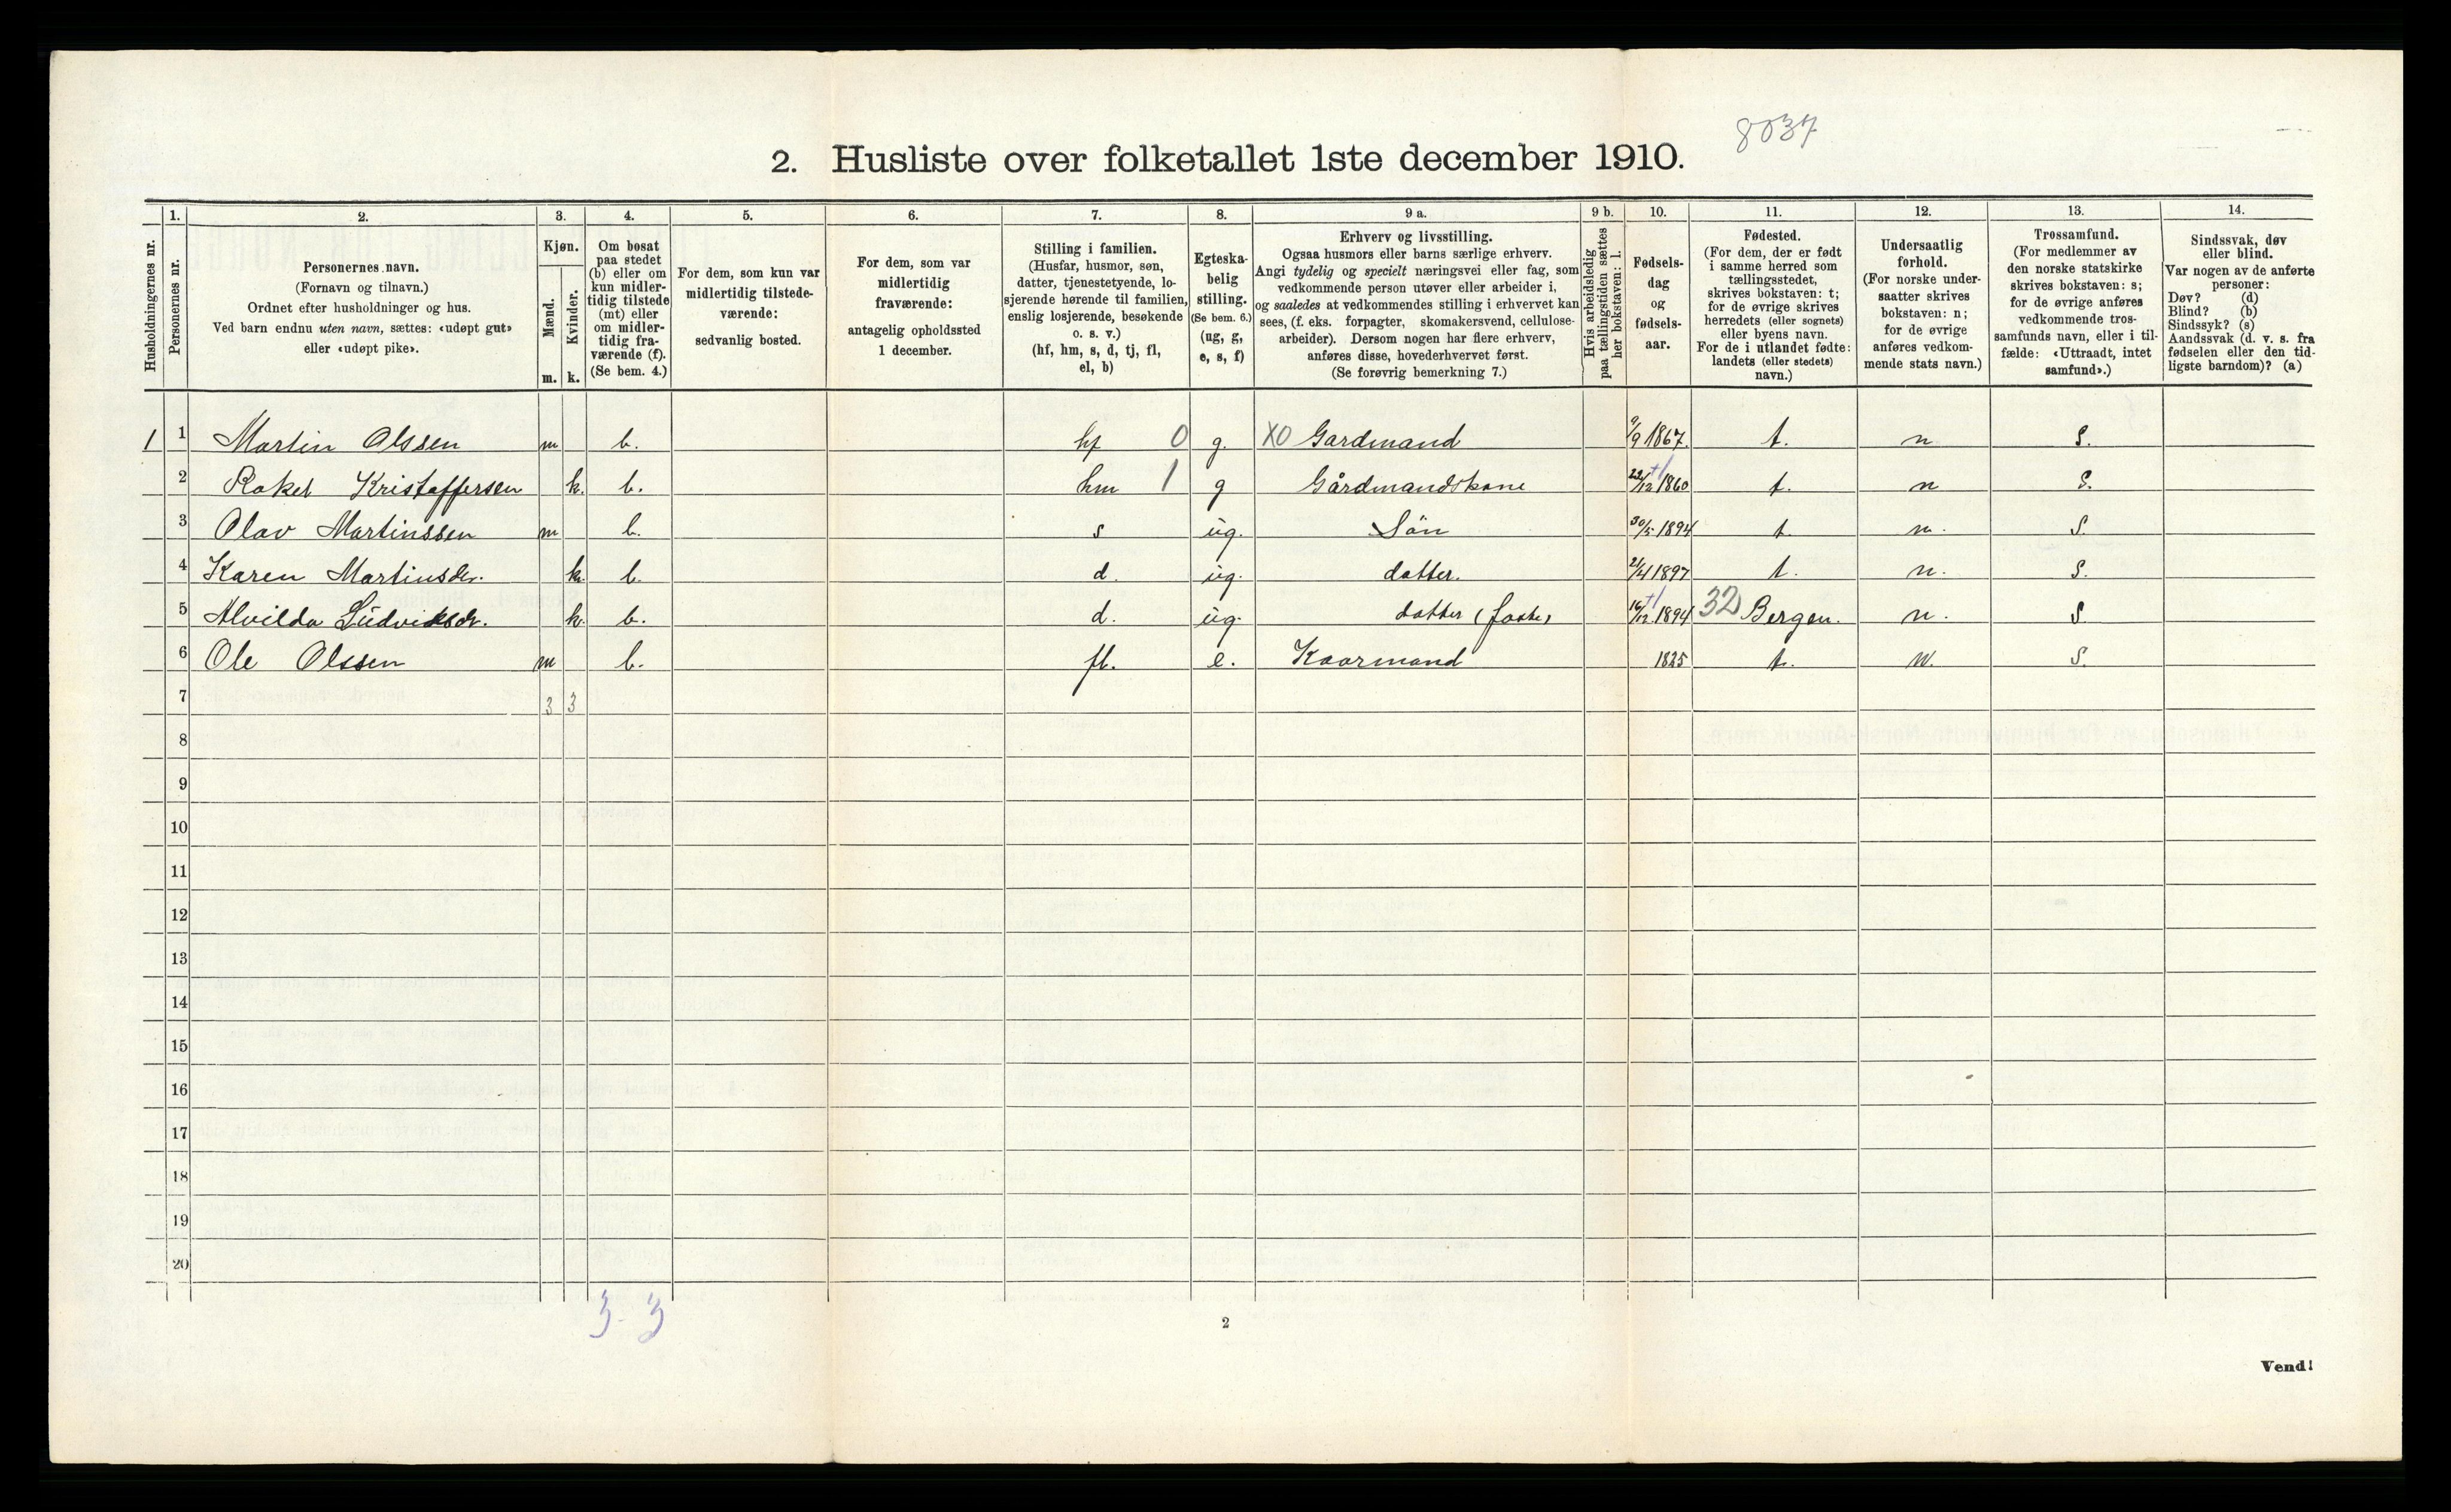 8037
2. Husliste over folketallet 1ste december 1910.
Husholdningernes nr.
1.
Personernes nr.
2.
Personernes navn.
(Fornavn og tilnavn.)
Ordnet efter husholdninger og hus.
Ved barn endnu uten navn, sættes: «udøpt gut»
eller «udøpt pike».
3.
Kjøn.
Mænd.
Kvinder.
m. k.
4.
Om bosat
paa stedet
(b) eller om
kun midler-
tidig tilstede
(mt) eller
om midler-
tidig fra-
værende (f).
(Se bem. 4.)
5.
For dem, som kun var
midlertidig tilstede-
værende:
sedvanlig bosted.
6.
For dem, som var
midlertidig
fraværende:
antagelig opholdssted
1 december.
7.
Stilling i familien.
(Husfar, husmor, søn,
datter, tjenestetyende, lo-
sjerende hørende til familien,
enslig losjerende, besøkende
o. s. v.)
(hf, hm, s, d, tj, fl,
el, b)
8.
Egteska-
belig
stilling.
(Se bem. 6.)
(ug, g,
e, s, f)
9 a.
Erhverv og livsstilling.
Ogsaa husmors eller barns særlige erhverv.
Angi tydelig og specielt næringsvei eller fag, som
vedkommende person utøver eller arbeider i,
og saaledes at vedkommendes stilling i erhvervet kan
sees, (f. eks. forpagter, skomakersvend, cellulose-
arbeider). Dersom nogen har flere erhverv,
anføres disse, hovederhvervet først.
(Se forøvrig bemerkning 7.)
9 b.
Hvis arbeidsledig
paa tællingstiden sættes
her bokstaven: l.
10.
Fødsels-
dag
og
fødsels-
aar.
11.
Fødested.
(For dem, der er født
i samme herred som
tællingsstedet,
skrives bokstaven: t;
for de øvrige skrives
herredets (eller sognets)
eller byens navn.
For de i utlandet fødte:
landets (eller stedets)
navn.)
12.
Undersaatlig
forhold.
(For norske under-
saatter skrives
bokstaven: n;
for de øvrige
anføres vedkom-
mende stats navn.)
13.
Trossamfund.
(For medlemmer av
den norske statskirke
skrives bokstaven: s;
for de øvrige anføres
vedkommende tros-
samfunds navn, eller i til-
fælde: «Uttraadt, intet
samfund».)
14.
Sindssvak, døv
eller blind.
Var nogen av de anførte
personer:
Døv? (d)
Blind? (b)
Sindssyk? (s)
Aandssvak (d. v. s. fra
fødselen eller den tid-
ligste barndom)? (a)
1 1 Martin Olssen m b. hf 0 g. XO Gardmand 9/9 1867. t. n S.
2 Rakel Kristoffersen k. b. hm 1 g Gårdmandskone 22/12 1860 t. n S.
3 Olav Martinssen m b. s ug. Sön 30/5 1894 t. n. S.
4 Karen Martinsdr. k. b. d. ug. datter. 2/4 1897 t. n. S.
5 Alvilda Ludviksdr. k. b. d. ug. datter (foster) 16/12 1894 32 Bergen. n. S
6 Ole Olssen m b. fl. e. Kaarmand 1825 t. n. S.
7 3 3
8
9
10
11
12
13
14
15
16
17
18
19
20
3-3
2
Vend!